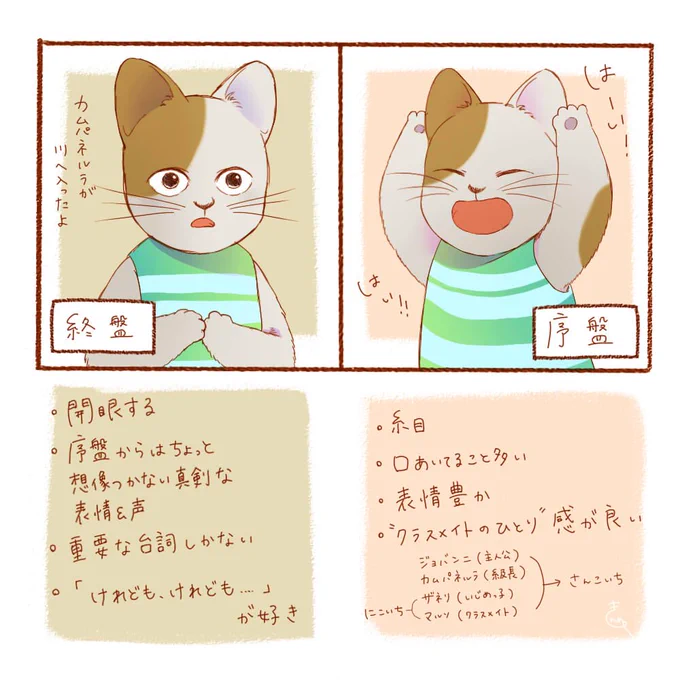 はーい!
はい!!
序盤
カムパネルラが
川へ入ったよ
終盤
・糸目
・口あいてること多い
・表情豊か
・"クラスメイトのひとり"感が良い
ジョバンニ(主人公)
カムパネルラ(級長)
ザネリ(いじめっ子)
マルソ(クラスメイト)
さんこいち
にこいち
・開眼する
・序盤からはちょっと
想像つかない真剣な
表情&声
・重要な台詞しかない
・「けれども、けれども....」
が好き